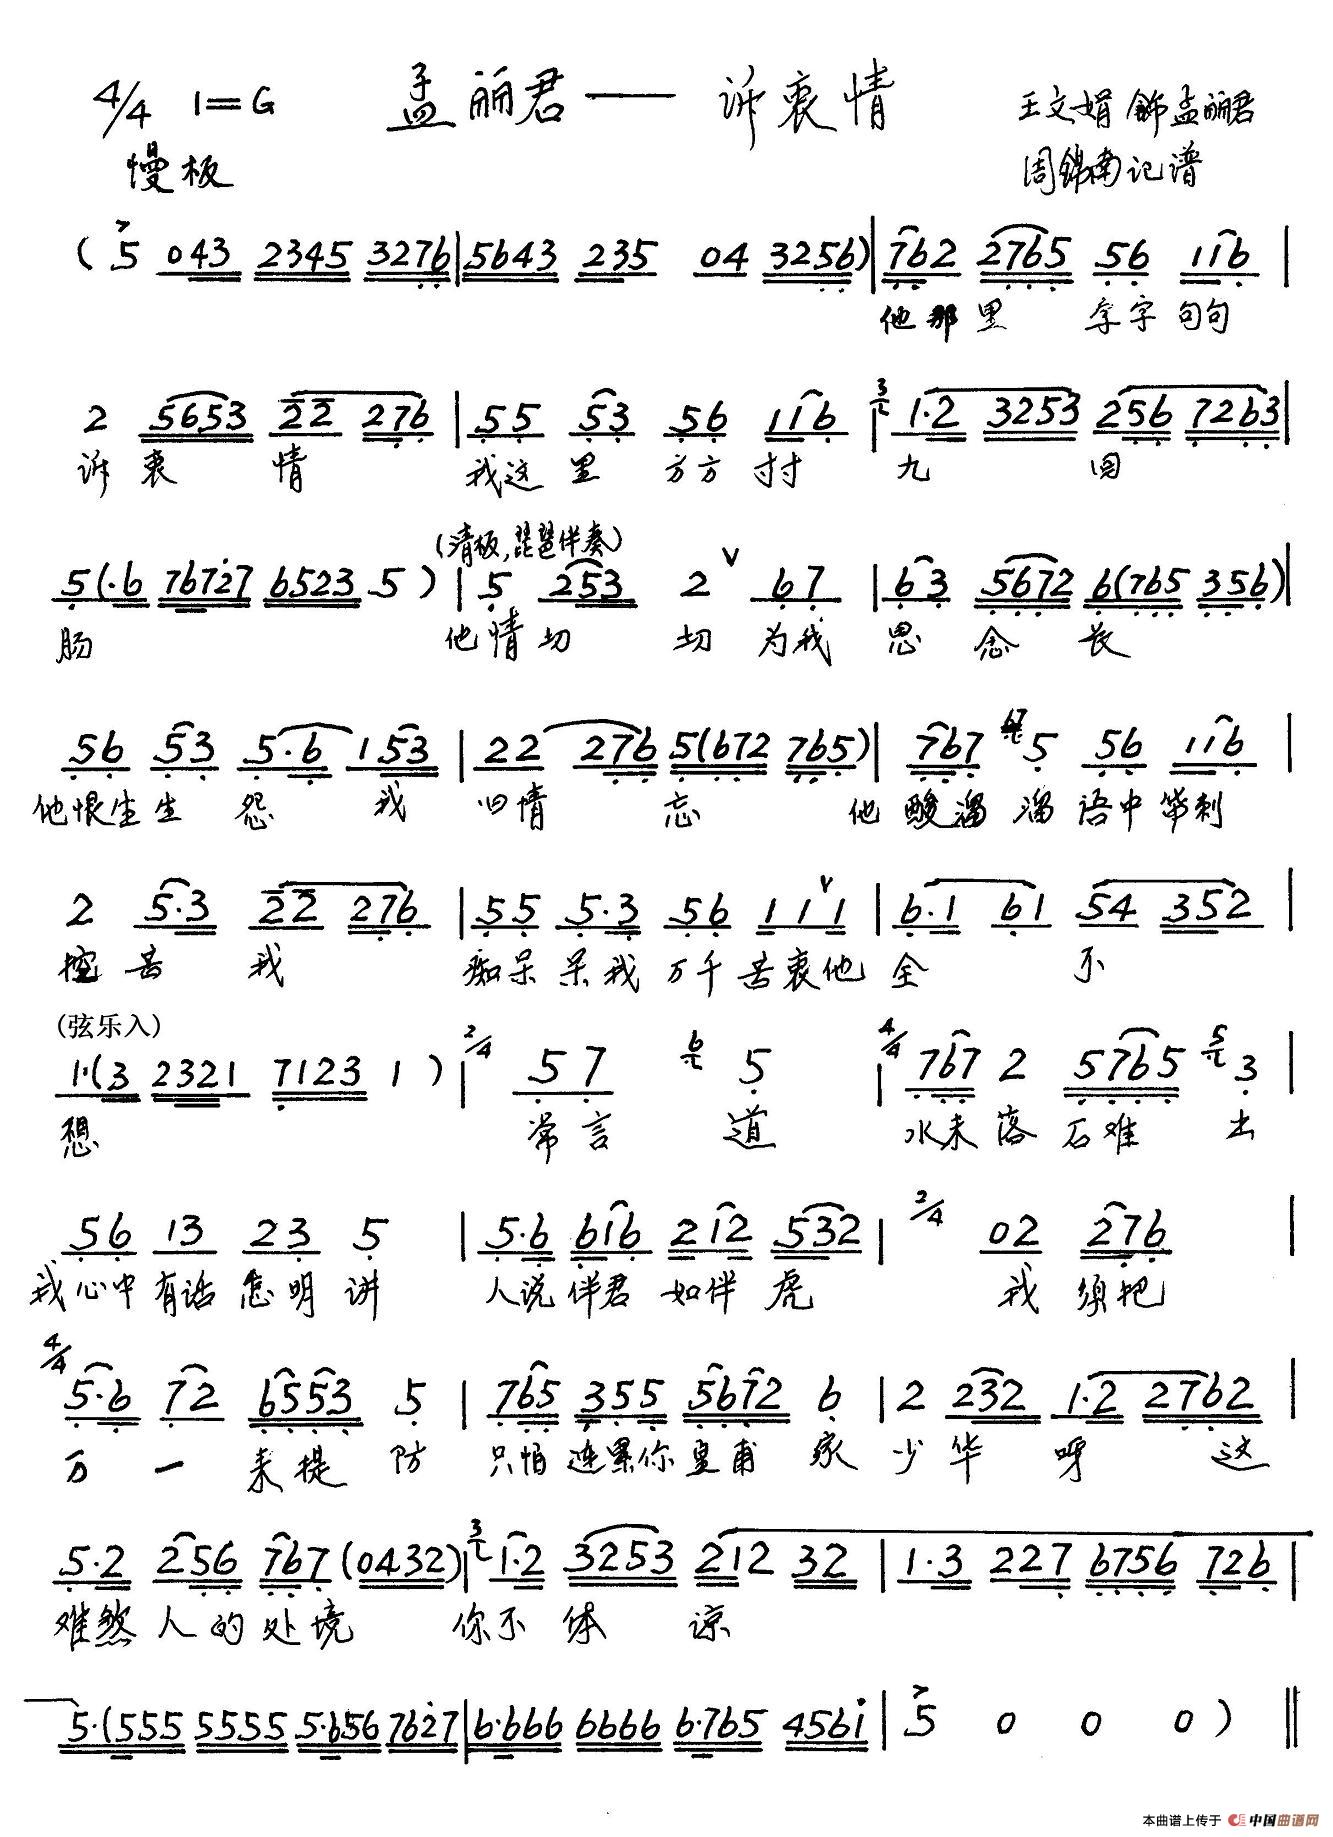 4/4 1=G 孟丽君——诉衷情 王文娟饰孟丽君
慢板 周锦南记谱
( 5 043 2345 3276 | 5643 235 04 3256 ) | 762 2765 56 116 |
他那里 字字句句
2 5653 22 276 | 55 53 56 116 | 3 1·2 3253 256 7263 |
诉衷情 我这里 方方寸寸 九回
(清板,琵琶伴奏)
5 (·6 76727 6523 5 ) | 5 253 2 V 67 | 63 5672 6(765 356) |
肠 他情切切为我思念长
56 53 5·6 153 | 22 276 5(672 765) | 767 5 56 116 |
他恨生生怨我 旧情忘 他酸溜溜语中带刺
2 5·3 22 276 | 55 5·3 56 11 V 1 | 6·1 61 54 352 |
控苦我 痴呆呆我万千苦衷他全不
(弦乐入)
1·(3 2321 7123 1 ) | 2/4 57 6 5 | 4/4 767 2 5765 5 3 |
想 常言道 水未落石难出
56 13 23 5 | 5·6 616 212 532 | 2/4 02 276 |
我心中有话怎明讲 人说伴君如伴虎 我须把
4/4
5·6 72 6553 5 | 765 355 5672 6 | 2 232 1·2 2762 |
万一来提防 只怕连累你皇甫家少华呀 这
5·2 256 767 (0432) | 3 1·2 3253 212 32 | 1·3 227 6756 726 |
难煞人的处境 你不体谅
5·(555 5555 5·656 7627 | 6·666 6666 6·765 4561 | 5 0 0 0 ) ‖
本曲谱上传于 中国曲谱网